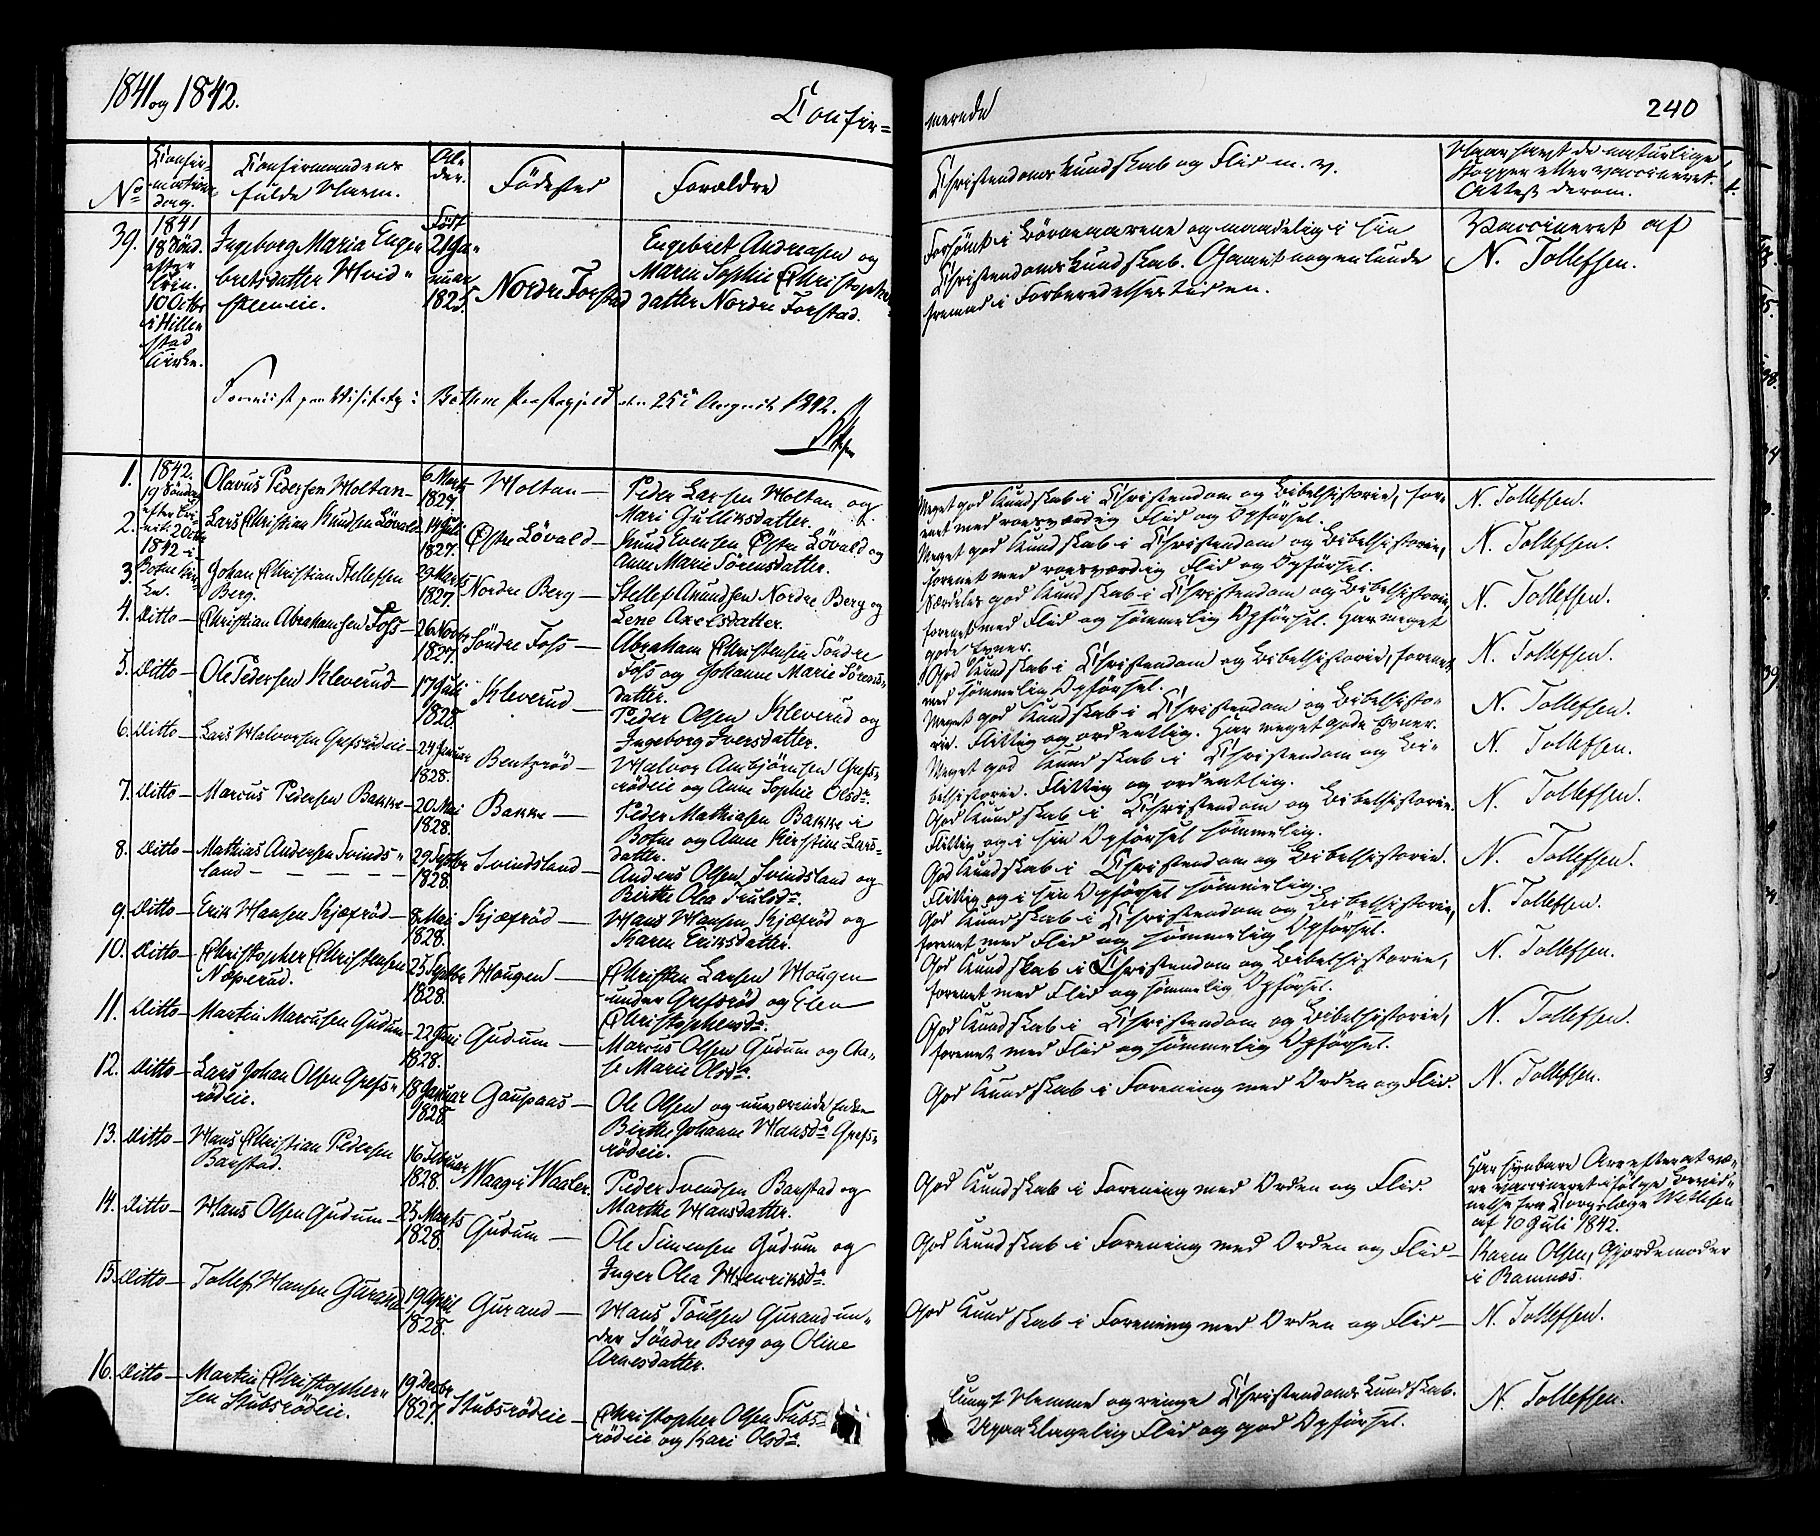 1841 og 1842.
Confir=
merede
240
No
Confir-
mations
dag.
Confirmandens
fulde Navn.
Al-
der.
Fødested
Forældre
Christendoms Kundskab og Flid m. v.
Naar havt de naturlige
Kopper eller vaccineret.
Attest derom.
39.
1841
18 Sönd.
efter
Trin.
10 Octbr
i Hille-
stad
Kirke.
Ingeborg Maria Enge-
bretsdatter Hvid-
steeneie.
Født
21 Ja-
nuar
1825.
Nordre Forstad
Engebret Andreasen og
Maren Sophie Christopher-
datter Nordre Forstad.
Forsömt i Börneaarene og maadelig i sin
Christendoms Kundskab. Gaaet nogenlunde
fremad i Forberedelsestiden.
Vaccineret af
N. Tollefsen.
Foreviist paa Visitats i Bothne Præstegjeld den 25de August 1842.
1.
1842.
19 Söndag
efter Tri-
nit: 2 Octbr
1842 i
Botne Kir-
ke.
Olavus Pedersen Holtan
6 Marts
1827.
Holtan
Peder Larsen Holtan og
Mari Gulliksdatter.
Meget god Kundskab i Christendom og Bibelhistorie, fore-
enet med roesværdig Flid og Opförsel.
N. Tollefsen.
2.
Lars Christian Knudsen Løvald
14 Juli
1827.
Østre Løvald
Knud Evensen Østre Løvald og
Anne Marie Sörensdatter.
Meget god Kundskab i Christendom og Bibelhistorie,
forenet med roesværdig Flid og Opförsel.
N. Tollefsen.
3.
Johan Christian Stellefsen
Berg.
29 Marts
1827.
Nordre Berg
Stellef Anundsen Nordre Berg og
Lene Axelsdatter.
Særdeles god Kundskab i Christendom og Bibelhistorie,
forenet med Flid og sömmelig Opförsel. Har meget
gode Evner.
N. Tollefsen.
4.
Ditto
Christian Abrahamsen Foss
26 Novbr
1827.
Söndre Foss
Abraham Christensen Söndre
Foss og Johanne Marie Sörens-
datter.
God Kundskab i Christendom og Bibelhistorie, forenet
med sömmelig Opförsel.
N. Tollefsen.
5.
Ditto
Ole Pedersen Kleverud
17 Juli
1828.
Kleverud
Peder Olsen Kleverud og
Ingeborg Iversdatter.
Meget god Kundskab i Christendom og Bibelhisto-
rie. Flittig og ordentlig. Har meget gode Evner.
N. Tollefsen.
6.
Ditto
Lars Halvorsen Grefsrödeie
24 Januar
1828.
Bentsröd
Halvor Anbjörnsen Grefs-
rödeie og Anne Sophie Olsdr.
Meget god Kundskab i Christendom og Bi-
belhistorie. Flittig og ordentlig.
N. Tollefsen.
7.
Ditto
Marcus Pedersen Bakke
20 Mai
1828.
Bakke
Peder Mathiasen Bakke i
Botne og Anne Kirstine Lars-
datter.
God Kundskab i Christendom og Bibelhistorie.
Flittig og i sin Opförsel sömmelig.
N. Tollefsen.
8.
Ditto
Mathias Andersen Svinds-
land
29 Septbr
1828.
Svindsland
Anders Olsen Svindsland og
Birthe Olea Trulsdr.
God Kundskab i Christendom og Bibelhistorie.
Flittig og i sin Opförsel sömmelig.
N. Tollefsen.
9.
Ditto
Erik Hansen Skjæfröd
8 Mai
1828.
Skjæfröd
Hans Hansen Skjæfröd og
Karen Eriksdatter.
God Kundskab i Christendom og Bibelhistorie,
forenet med Flid og sömmelig Opförsel.
N. Tollefsen.
10.
Ditto
Christopher Christensen
Næperud.
25 Septbr
1828.
Hougen
Christen Larsen Hougen
under Grefsröd og Elen
Christophersdr.
God Kundskab i Christendom og Bibelhistorie,
forenet med Flid og sömmelig Opförsel.
N. Tollefsen.
11.
Ditto
Martin Marcusen Gudum
22 Juni
1828.
Gudum
Marcus Olsen Gudum og Aa-
se Marie Olsdr.
God Kundskab i Christendom og Bibelhistorie,
forenet med Flid og sömmelig Opförsel.
N. Tollefsen.
12.
Ditto
Lars Johan Olsen Grefs-
rödeie.
18 Januar
1828.
Gaupaas
Ole Olsen og nuværende Enke
Birthe Johanne Hansdr Grefs-
rödeie.
God Kundskab i Forening med Orden og Flid.
N. Tollefsen.
13.
Ditto
Hans Christian Pedersen
Barstad.
16 Februar
1828.
Haag i Waaler.
Peder Svendsen Barstad og
Marthe Hansdatter.
God Kundskab i Forening med Orden og Flid.
Har synbare Ar efter at væ-
re vaccineret ifölge Bevid-
nelse fra Corpslæge
af 10 Juli 1842.
14.
Ditto
Hans Olsen Gudum
25 Marts
1828.
Gudum
Ole Simensen Gudum og
Inger Olea Henriksdr.
God Kundskab i Forening med Orden og Flid
Karen Olsen, Gjordemoder
i Ramnæs.
15.
Ditto
Tollef Hansen Gurand
19 April
1828.
Gurand
Hans Poulsen Gurand un-
der Söndre Berg og Oline
Arnesdatter.
God Kundskab i Forening med Orden og Flid
N. Tollefsen.
16.
Ditto
Martin Christopher-
sen Stubsrödeie.
19 Decbr
1827.
Stubsrödeie
Christopher Olsen Stubs-
rödeie og Kari Olsdr.
Tungt Nemme og ringe Christendoms Kundskab.
Upaaklagelig Flid og god Opförsel.
N. Tollefsen.